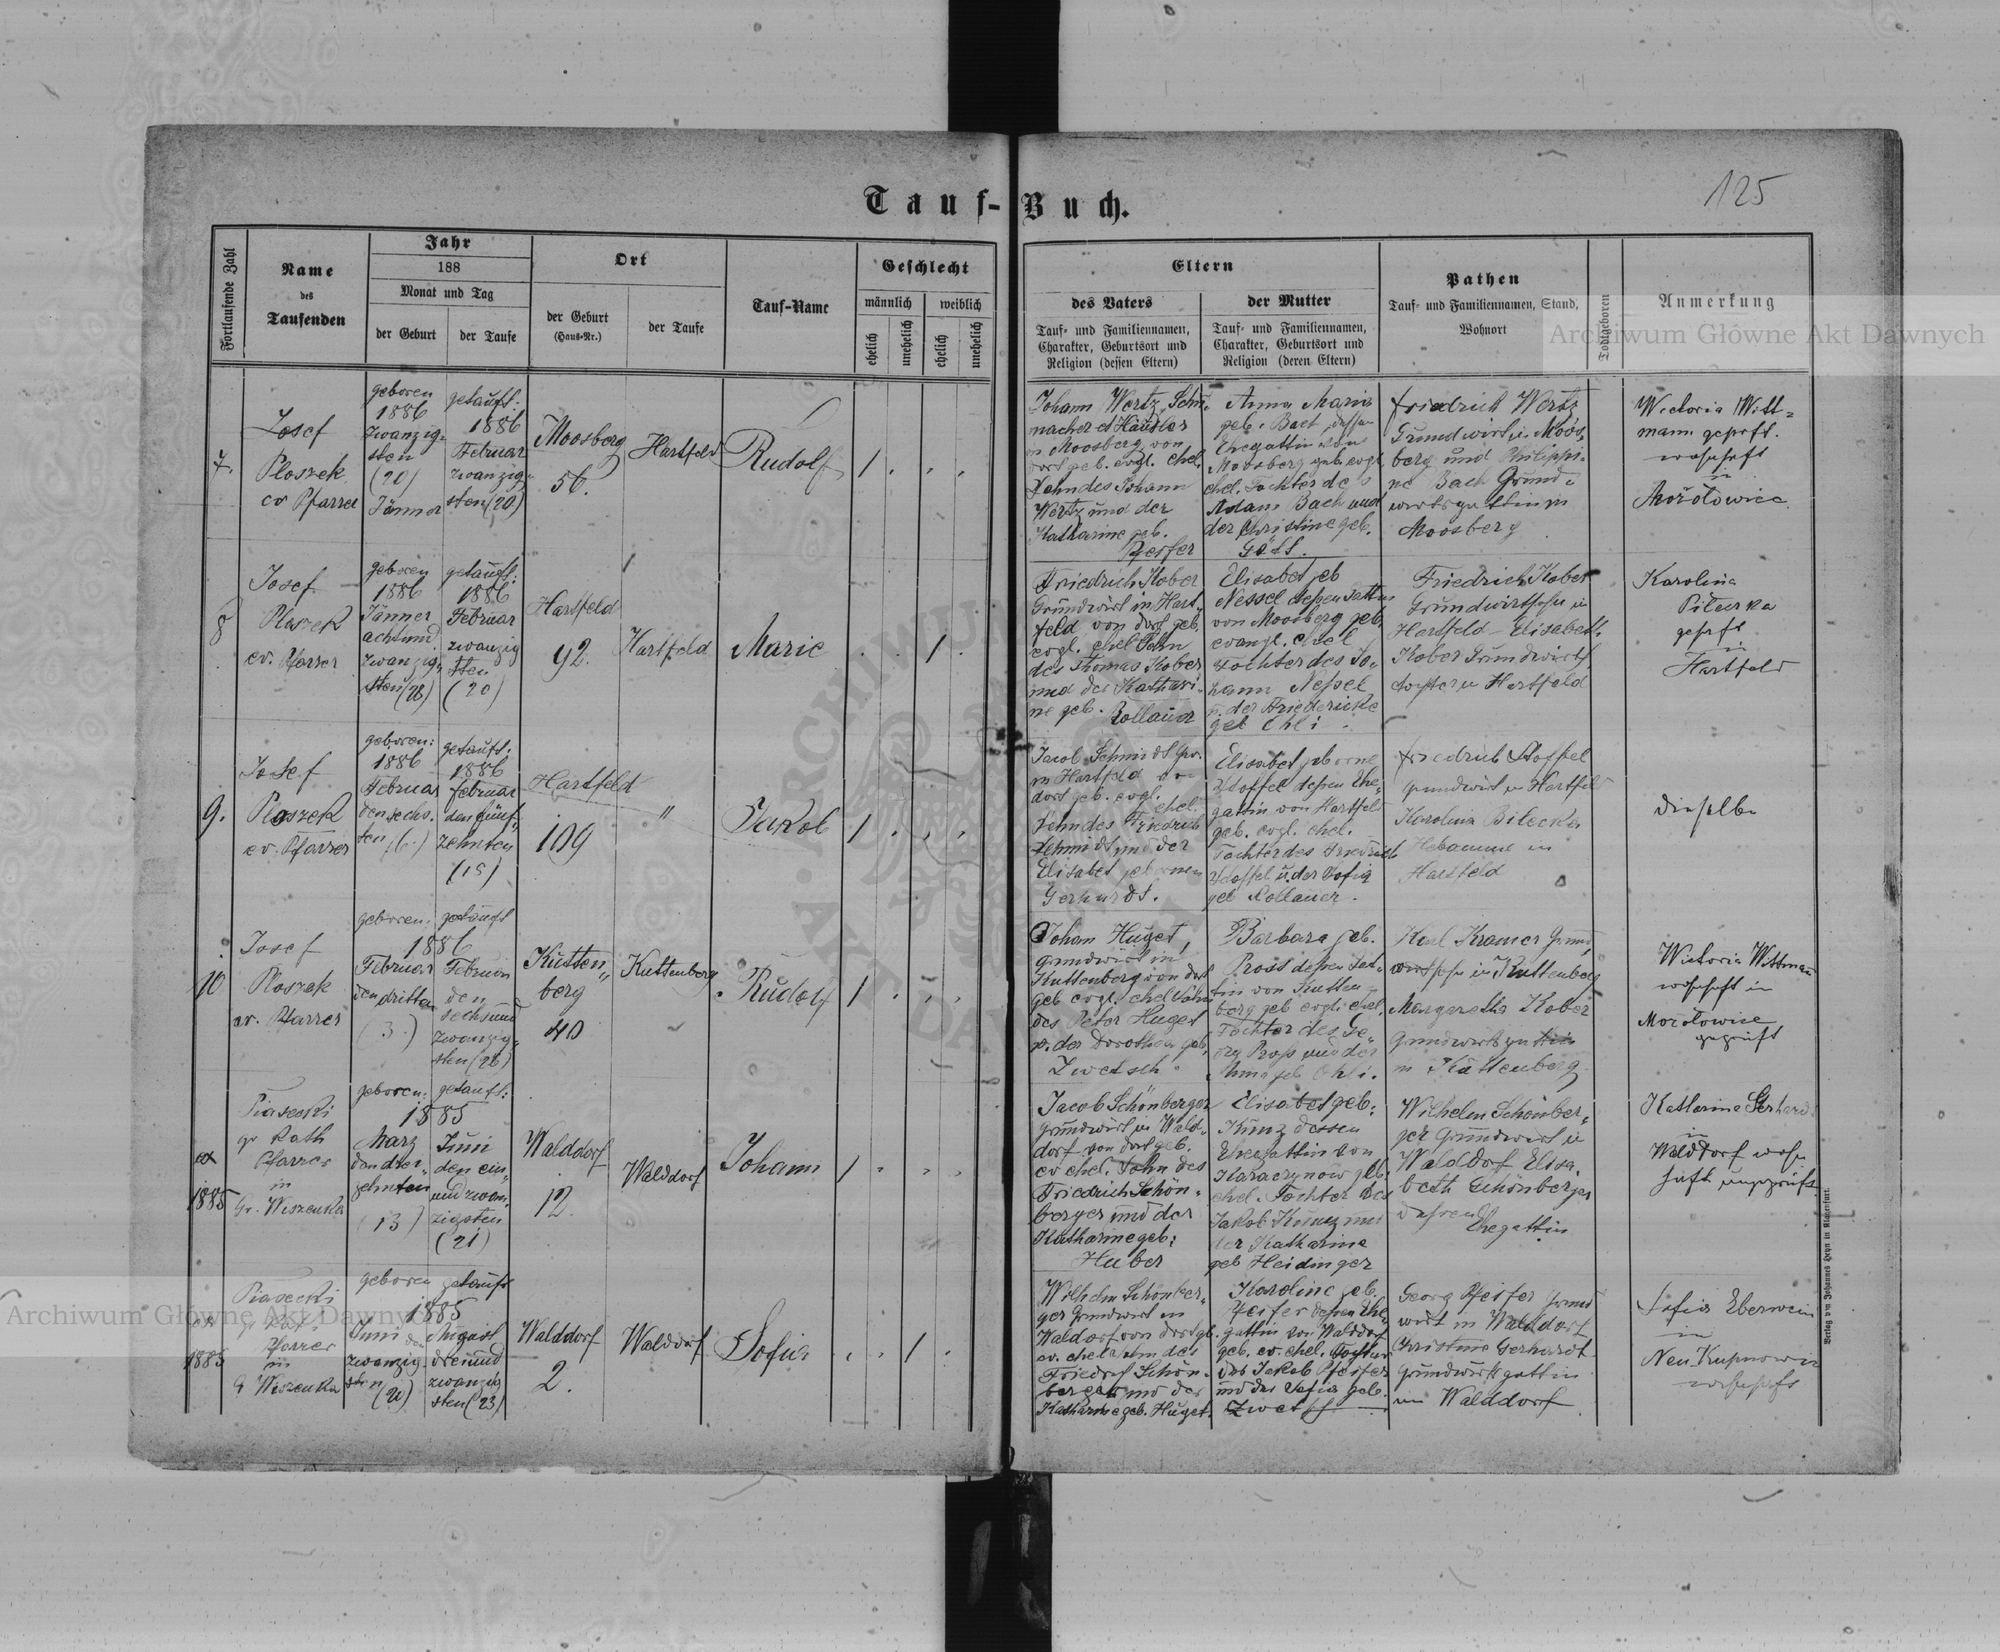 Tauf-Buch.
125
Fortlaufende Zahl
Name
des
Taufenden
Jahr
188
Monat und Tag
der Geburt
der Taufe
Ort
der Geburt
(Haus-Nr.)
der Taufe
Tauf-Name
Geschlecht
männlich
weiblich
ehelich
unehelich
ehelich
unehelich
Eltern
des Vaters
Tauf- und Familiennamen,
Charakter, Geburtsort und
Religion (dessen Eltern)
der Mutter
Tauf- und Familiennamen,
Charakter, Geburtsort und
Religion (deren Eltern)
Pathen
Tauf- und Familiennamen, Stand,
Wohnort
Todtgeboren
Anmerkung
Archiwum Główne Akt Dawnych
7.
Josef
Ploszek
ev Pfarrer
geboren
1886
zwanzig-
sten
(20)
Jänner
getauft:
1886
Februar
zwanzig-
sten (20)
Moosberg
56.
Hartfeld
Rudolf
1
Johann Wertz
in Moosberg von
dort geb. evgl. ehel.
Sohn des Johann
Wertz und der
Katharine geb.
Anna Maria
geb. Bach dessen
Ehegattin von
Moosberg geb. evgl.
ehel. Tochter des
Adam Bach und
der Christine geb.
Friedrich Wertz
Grundwirt in Moos-
berg und Philippi-
ne Bach Grund-
wirtsgattin in
Moosberg
Wictoria Witt-
mann geprft.
wohnhaft
in
Mořolowice
8
Josef
Ploszek
ev. Pfarrer
geboren
1886
Jänner
achtund
zwanzig-
sten (28)
getauft:
1886
Februar
zwanzig
sten
(20)
Hartfeld
92.
Hartfeld
Marie
1
Friedrich Kober
Grundwirt in Hart-
feld von dort geb.
evgl. ehel Sohn
des Thomas Kober
und der Kathari-
ne geb. Rollauer
Elisabet geb
Nessel dessen Gattin
von Moosberg geb.
evangl. ehel
Tochter des Jo-
hann Nessel
u. der Friedericke
geb Ehli
Friedrich Kober
Grundwirtsohn in
Hartfeld - Elisabeth
Kober Grundwirts
tochter in Hartfeld
Karolina
Bilecka
geprft
in
Hartfeld
9.
Josef
Ploszek
ev. Pfarrer
geboren:
1886
Februar
den sechs-
ten (6.)
getauft:
1886
Februar
den fünf-
zehnten
(15)
Hartfeld
109
"
Jakob
1
Jacob Schmidt
in Hartfeld von
dort geb. evgl. ehel.
Sohn des Friedrich
Schmidt und der
Elisabet gebornen
Gerhardt.
Elisabet geborne
Stoffel dessen Ehe-
gattin von Hartfeld
geb. evgl. ehel.
Tochter des Friedrich
Stoffel u. der Sofia
geb Rollauer.
Friedrich Stoffel
Grundwirt in Hartfeld
Karolina Bilecka
Hebamme in
Hartfeld
dieselbe
10
Josef
Ploszek
ev. Pfarrer
geboren:
1886
Februar
den dritten
(3.)
getauft
Februar
den
sechsund
zwanzig-
sten (26)
Kutten-
berg
40
Kuttenberg
Rudolf
1
Johan Huget,
Grundwirt in
Kuttenberg von dort
geb evgl. ehel Sohn
des Peter Huget
u. der Dorothea geb.
Zwetsch
Barbara geb.
Pross dessen Gat-
tin von Kutten-
berg geb evgl ehel.
Tochter des Ge-
org Pross und der
Anna geb Ehli.
Karl Kramer Grund-
wirtsohn in Kuttenberg
Margaretha Kober
Grundwirtsgattin
in Kuttenberg
Wictoria Wittmann
wohnhaft in
Mořolowice
geprüft
ex
1885
Piasecki
gr kath
Pfarrer
in
Gr. Wiszenka
geboren:
1885
März
den drei-
zehnten
(13)
getauft:
Juni
den ein-
und zwan-
zigsten
(21)
Walddorf
12.
Walddorf
Johann
1
Jacob Schönberger
Grundwirt in Wald-
dorf von dort geb.
ev ehel. Sohn des
Friedrich Schön-
berger und der
Katharine geb:
Huber
Elisabet geb:
Kunz dessen
Ehegattin von
Karaczynów geb.
ehel. Tochter des
Jakob Kunz und
der Katharine
geb Heidinger
Wilhelm Schönber-
ger Grundwirt in
Walddorf Elisa-
beth Schönberger
dessen
Ehegattin
Katharina Gerhard
in
Walddorf wohn
haft ungeprüft
ex
1885
Piasecki
gr kath
Pfarrer
in
G Wiszenka
geboren
1885
Juni
zwanzig-
sten (20)
getauft
August
dreiund
zwanzig
sten (23)
Walddorf
2.
Walddorf
Sofia
1
Wilhelm Schönber-
ger Grundwirt in
Walddorf von dort gb.
ev. ehel Sohn des
Friedrich Schön-
berger und der
Katharine geb. Huget.
Karoline geb.
Pfeifer dessen Ehe-
gattin von Walddorf
geb. ev. ehel. Tochter
des Jakob Pfeifer
und der Sofia geb.
Zwetsch
Georg Pfeifer Grund
wirt in Walddorf
Kristine Gerhardt
Grundwirtsgattin
in Walddorf
Sofia Eberwein
in
Neu Kupnowice
wohnhaft
Verlag von Johannes Heyn in Klagenfurt.
Archiwum Główne Akt Dawnych